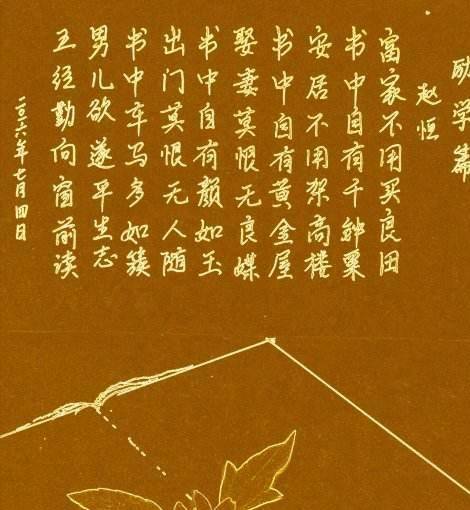 励学篇
赵恒
富家不用买良田
书中自有千钟粟
安居不用架高楼
书中自有黄金屋
娶妻莫恨无良媒
书中自有颜如玉
出门莫恨无人随
书中车马多如簇
男儿欲遂平生志
五经勤向窗前读
二〇一六年七月四日